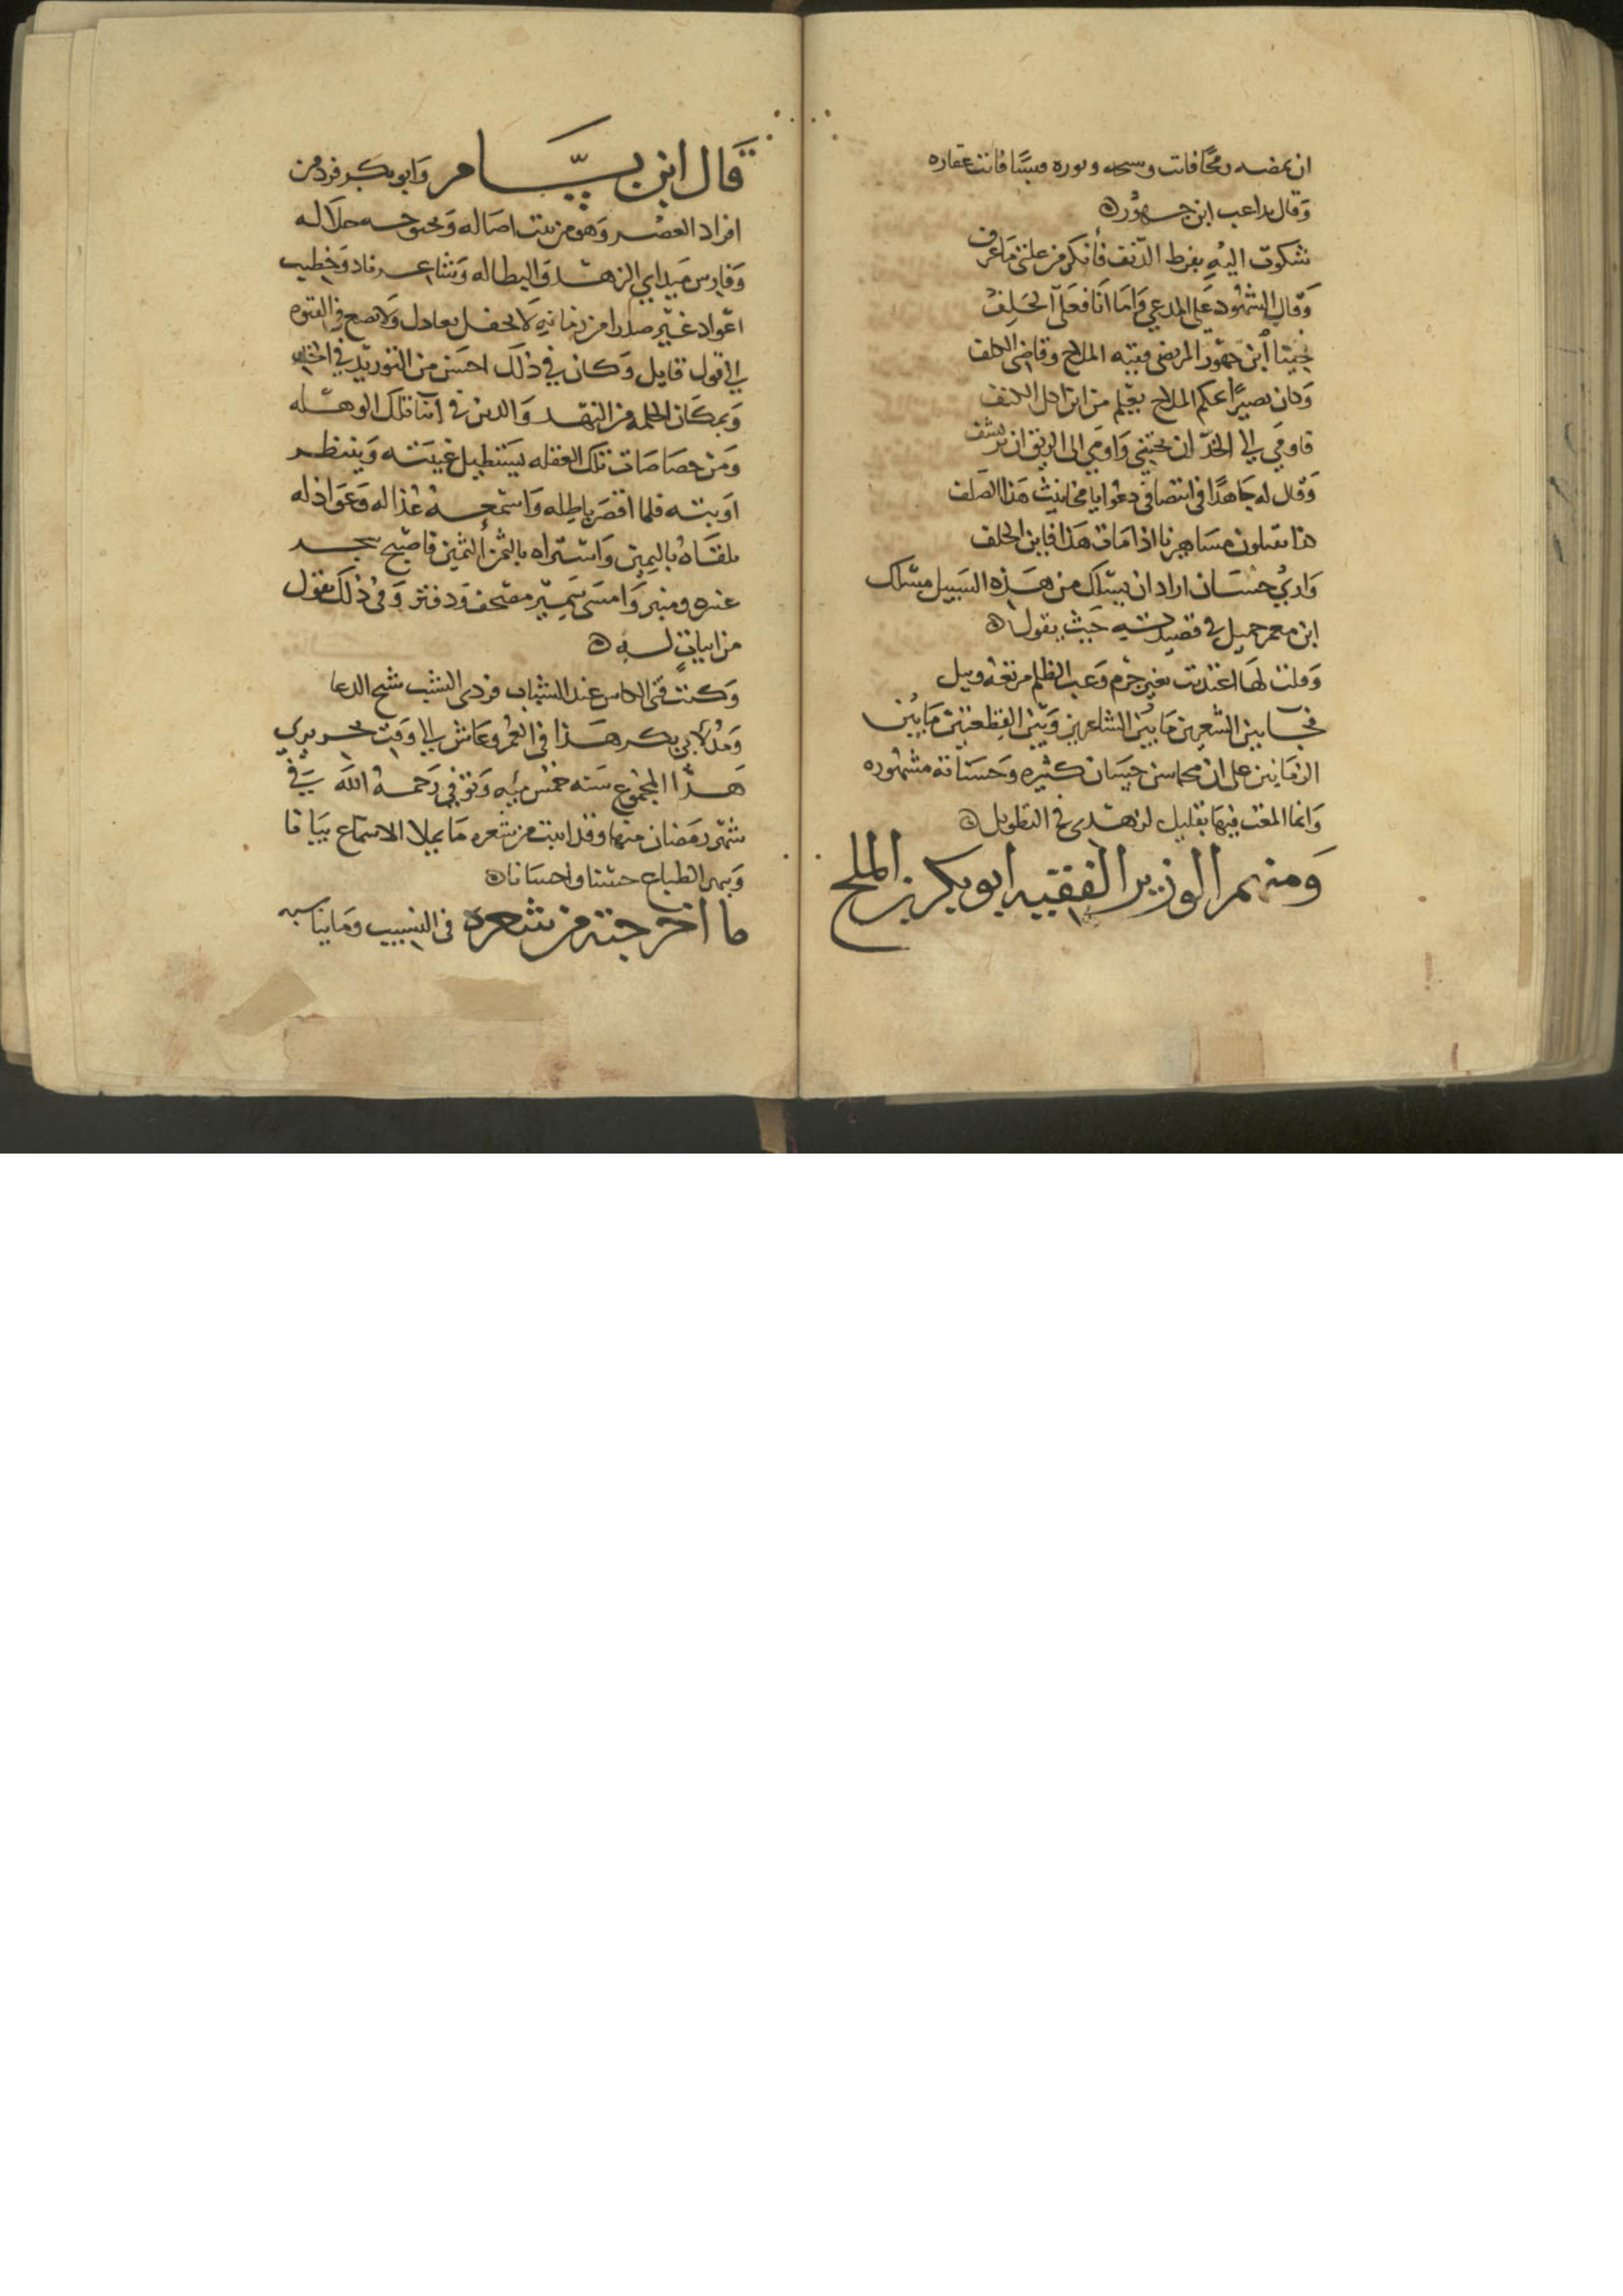 ان عضه رمحا فانت وسحه ونوره مبسا فانت عقاره
وقال يداعب ابن جهور
شكوت اليه بفرط الدنف فانكر من علتي ما عرف
وقال الشهود على المدعي واما انا فعلى الحلف
فجينا ابن جهور المرضى فقيه الملاح وقاضى الكلف
وكان بصيرا بحكم الملاح يعلم من اين اكل الكتف
فاومي الى الخد ان يجتني واومي الى الريق ان يرتشف
وقال له جاهدا في انتصافي دعوا يا مخانيث هذا الصلف
هنا تقتلون مشاهيرنا اذا مات هذا فاين الخلف
وارى حسان اراد ان يسلك من هذه السبيل مسلك
ابن معمر جميل في قصيدته حيث يقول
وقلت لها اعتديت بغير جرم وغب الظلم مرتعه وبيل
فجا بين الشعرين ما بين الشاعرين وبين القطعتين ما بين
الزمانين على ان محاسن حسان كثيره وحسناته مشهوره
وانما المعت فيها بقليل لن هدى في التطويل
ومنهم الوزير الفقيه ابو بكر بن الملح
قال ابن بسام وابو بكر فرد من
افراد العصر وهو من بيت اصاله وبحبوحه جلاله
وفارس ميداني الزهد والبطاله وشاعر ناد وخطيب
اعواد غير صدرا من زمانه لا يحفل بعاذل ولا يصغ في الفتوه
الى قول قايل وكان في ذلك احسن من التوريد في الخد
وبمكان الحلمه من النهد والدين في اثنا تلك الوهله
ومن خصاصات تلك الغفله يستطيل غيبته وينتظر
اوبته فلما اقصر باطله واسمجه عذاله وعواذله
تلقاه باليمين واشتراه بالثمن الثمين فاصبح سجد
عنزه ومنبر وامسى سمير مصحف ودفتر وفي ذلك يقول
من ابيات له
وكنت فتى الكاس عند الشباب فردى الشيب شيخ الدعا
ومد لابي بكر هذا في العمر وعاش الى وقت تحريري
هذا المجموع سنه خمس ميه وتوفي رحمه الله في
شهر رمضان منها وقد اثبت من شعره ما يملا الاسماع بيانا
ويبهر الطباع حسنا واحسانا
ما اخرجته من شعره في النسيب وما يناسبه